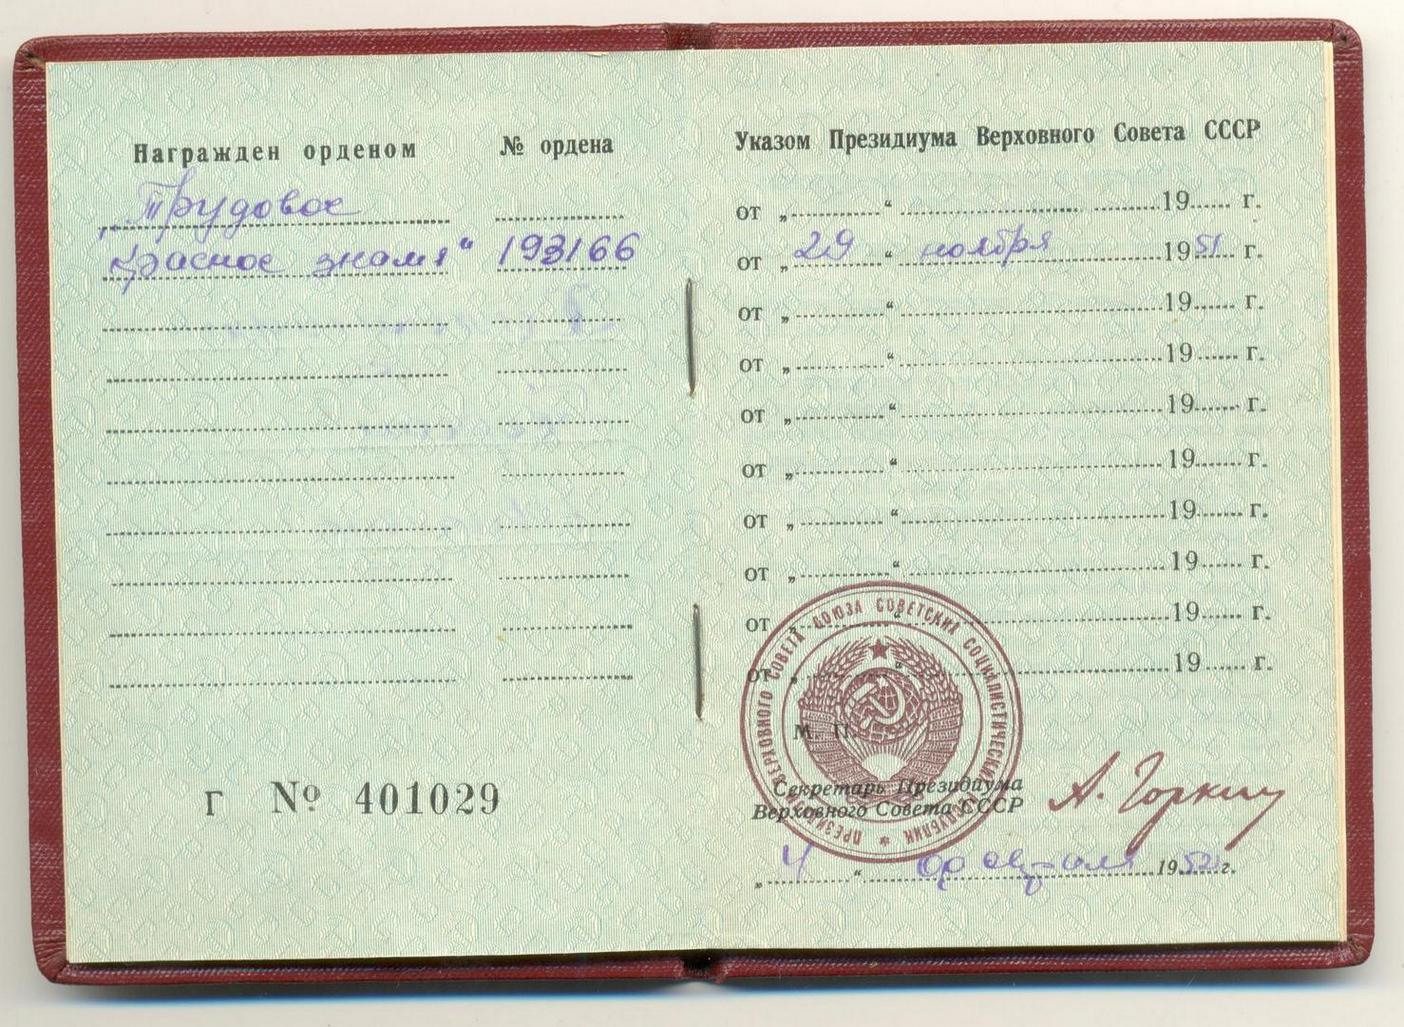 Награжден орденом № ордена
Трудовое
„Красное знамя“ 193166
Г № 401029
Указом Президиума Верховного Совета СССР
от „ “ 19 г.
от „ 29 “ ноября 1951 г.
от „ “ 19 г.
от „ “ 19 г.
от „ “ 19 г.
от „ “ 19 г.
от „ “ 19 г.
от „ “ 19 г.
от „ “ 19 г.
от „ “ 19 г.
ПРЕЗИДИУМ ВЕРХОВНОГО СОВЕТА СОЮЗА СОВЕТСКИХ СОЦИАЛИСТИЧЕСКИХ РЕСПУБЛИК
М. П.
Секретарь Президиума
Верховного Совета СССР
А. Горкин
„ 4 “ февраля 1952 г.